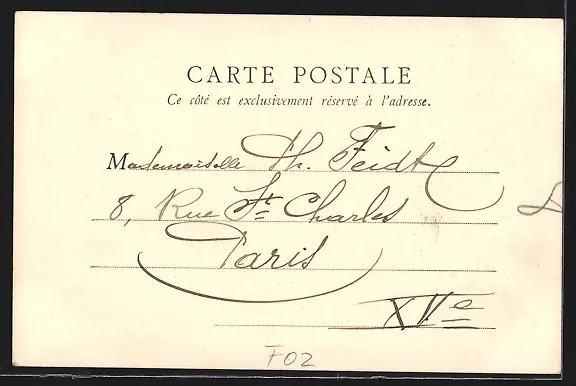 CARTE POSTALE
Ce côté est exclusivement réservé à l'adresse.
Mademoiselle Th. Feidt
8, Rue St Charles
Paris
XVe
F02